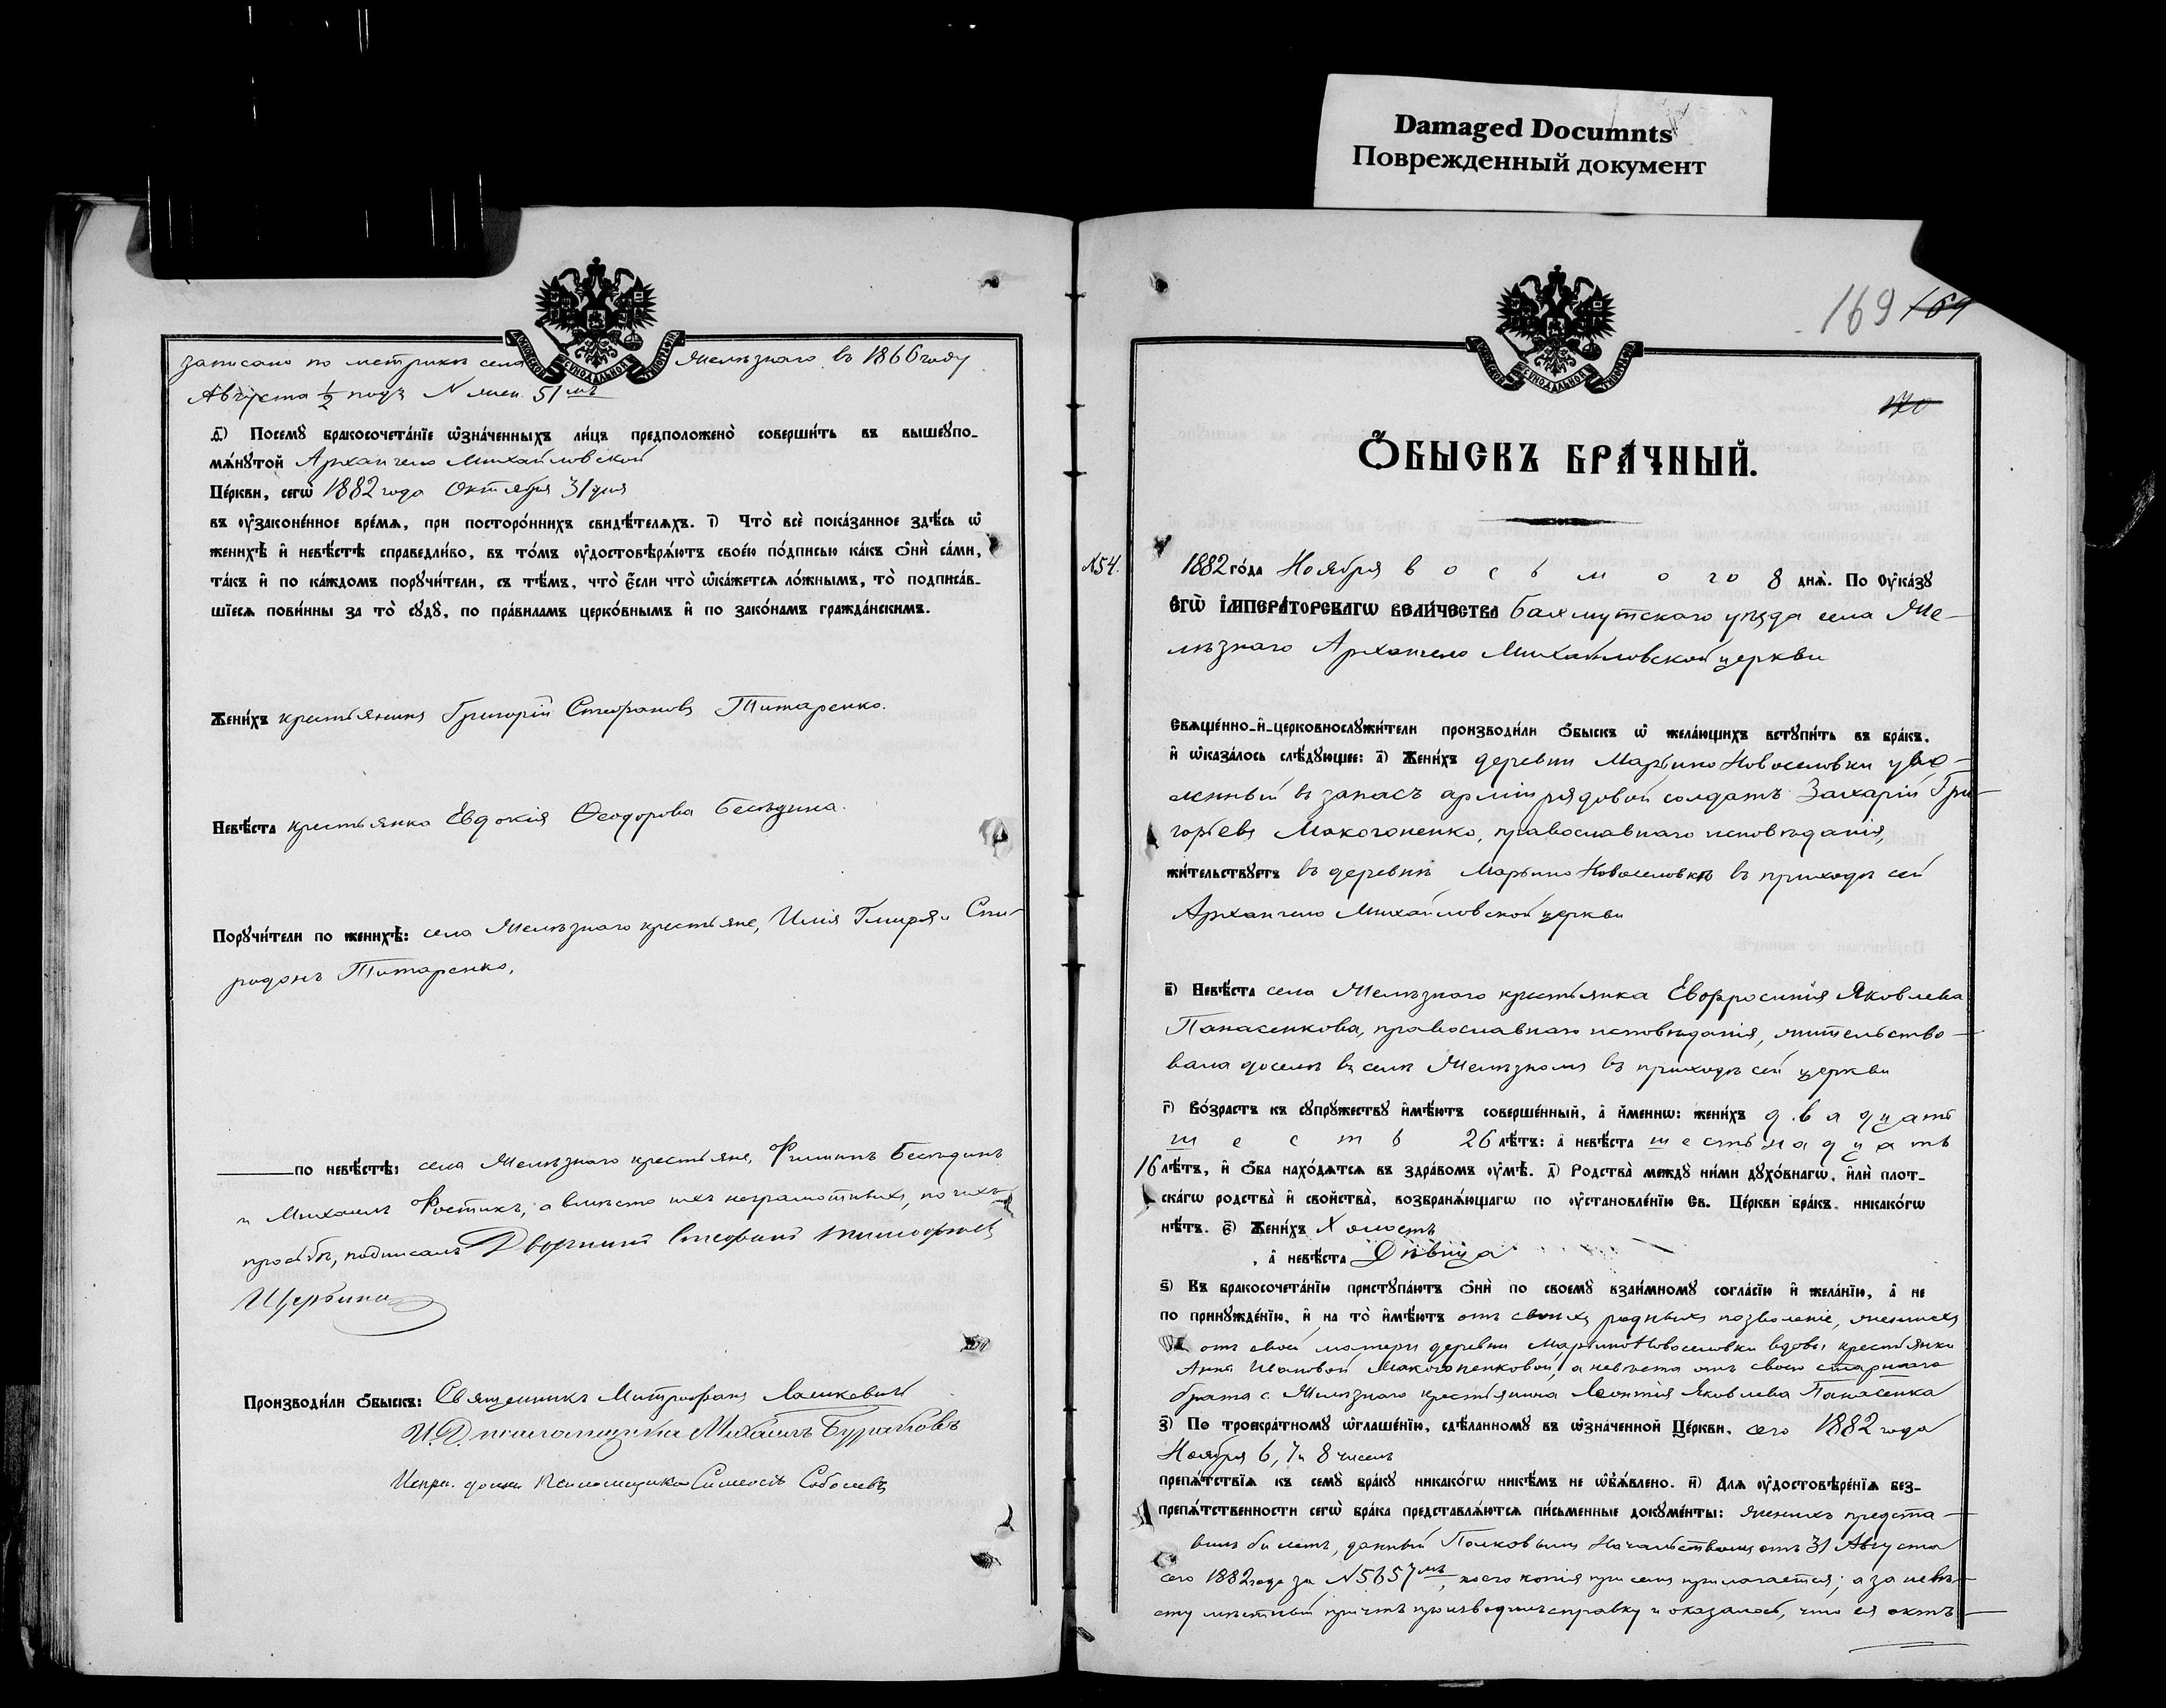 Damaged Documnts
Поврежденный документ
записано по метрикѣ села Желѣзнаго въ 1866 году
Августа ½ подъ N жен. 51мъ
д҃) Посемꙋ бракосочета́нїе ѡ҆зна́ченныхъ ли́цъ предположено̀ соверши́ть въ вышеꙋпо-
мѧ́нꙋтой Архангело Михайловской
Це́ркви, сегѡ̀ 1882 года Октября 31 дня
въ ᲂу҆зако́ненное вре́мѧ, при посторо́ннихъ свидѣ́телѧхъ. і҃) Что̀ всѐ пока́занное здѣ́сь ѡ҆
женихѣ̀ и҆ невѣ́стѣ справедли́во, въ то́мъ ᲂу҆достовѣрѧ́ютъ свое́ю по́дписью ка́къ ѻ҆нѝ са́ми,
та́къ и҆ по ка́ждомъ порꙋчи́тели, съ тѣ́мъ, что̀ є҆́сли что̀ ѡ҆ка́жетсѧ ло́жнымъ, то̀ подписа́в-
шїесѧ пови́нны за то̀ сꙋдꙋ̀, по пра́виламъ церко́внымъ и҆ по зако́намъ гражда́нскимъ.
Жени́хъ крестьянинъ Григорій Стефановъ Титаренко.
Невѣ́ста крестьянка Евдокія Ѳеодорова Бесѣдина.
Порꙋчи́тели по женихѣ̀: села Желѣзнаго крестьяне, Илія Гмиря и Спи-
ридонъ Титаренко,
по невѣ́стѣ: села Желѣзнаго крестьяне, Филиппъ Бесѣдинъ
и Михаилъ Фостикъ, а вмѣсто ихъ неграмотныхъ, по ихъ
просьбѣ, подписалъ Дворянинъ Стефанъ Тимофѣев
Щербина
Производи́ли ѻ҆́быскъ: Священникъ Митрофанъ Лашкевичъ
И.Д. псаломщика Михаилъ Бураковъ
Испр. должн. Псаломщика Симеонъ Соболевъ
169 164
170
Ѻ҆́быскъ бра́чный.
N54. 1882 го́да Ноября восьмого 8 днѧ̀. По ᲂу҆ка́зꙋ
Є҆гѡ̀ І҆мпера́торскагѡ вели́чества Бахмутскаго уѣзда села Же-
лѣзнаго Архангело Михайловской церкви
Свѧще́нно-и҆-церковнослꙋжи́тели производи́ли ѻ҆́быскъ ѡ҆ жела́ющихъ встꙋпи́ть въ бра́къ,
и҆ ѡ҆каза́лось слѣ́дꙋющее: а҃) Жени́хъ деревни Марьино Новоселовки уво-
ленный въ запасъ арміи рядовой солдатъ Захарій Гри-
горьевъ Макогоненко, православнаго исповѣданія,
жи́тельствꙋетъ въ деревнѣ Марьино Новоселовкѣ въ приходѣ сей
Архангело Михайловской церкви
в҃) Невѣ́ста села Желѣзнаго крестьянка Евфросинія Яковлева
Панасенкова, православнаго исповѣданія, жительство-
вала доселѣ въ селѣ Желѣзномъ въ приходѣ сей церкви
г҃) Во́зрастъ къ сꙋпрꙋ́жествꙋ и҆мѣ́ютъ соверше́нный, а҆ и҆́меннѡ: жени́хъ двадцать
шесть 26 лѣ́тъ: а҆ невѣ́ста шестьнадцать
16 лѣ́тъ, и҆ ѻ҆́ба нахо́дѧтсѧ въ здра́вомъ ᲂу҆мѣ̀. д҃) Родства̀ междꙋ̀ ни́ми дꙋхо́внагѡ, и҆лѝ плот-
ска́гѡ родства̀ и҆ сво́йства̀, возбранѧ́ющагѡ по ᲂу҆становле́нїю Св. Це́ркви бра́къ, никако́гѡ
нѣ́тъ. є҃) Жени́хъ Холостъ
, а҆ невѣ́ста Дѣвица
ѕ҃) Къ бракосочета́нїю пристꙋпа́ютъ ѻ҆нѝ по своемꙋ̀ взаи́мномꙋ согла́сїю и҆ жела́нїю, а҆ не
по принꙋжде́нїю, и҆ на то̀ и҆мѣ́ютъ отъ своихъ родныхъ позволеніе, женихъ
отъ своей матери деревни Марьино Новоселовки вдовы крестьянки
Анны Ивановой Макогоненковой, а невѣста отъ своего старшаго
брата с. Желѣзнаго крестьянина Леонтія Яковлева Панасенка
з҃) По троекра́тномꙋ ѡ҆глаше́нїю, сдѣ́ланномꙋ въ ѡ҆зна́ченной Це́ркви, сего 1882 года
Ноября 6, 7 и 8 чиселъ
препѧ́тствїѧ къ семꙋ̀ бра́кꙋ никако́гѡ никѣ́мъ не ѡ҆бъѧ́влено. и҃) Длѧ ᲂу҆достовѣре́нїѧ без-
препѧ́тственности сегѡ̀ бра́ка представлѧ́ютсѧ пи́сьменные докꙋме́нты: женихъ предста-
вилъ билетъ, данный Полковымъ Начальствомъ отъ 31 Августа
сего 1882 года за N5657мъ, коего копія при семъ прилагается; а за невѣ-
сту мѣстный причтъ производилъ справку и оказалось, что ея актъ